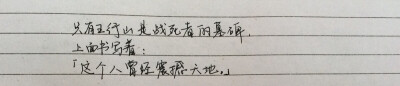 只有五行山是战死者的墓碑,
上面书写着:
「这个人曾经震撼天地。」